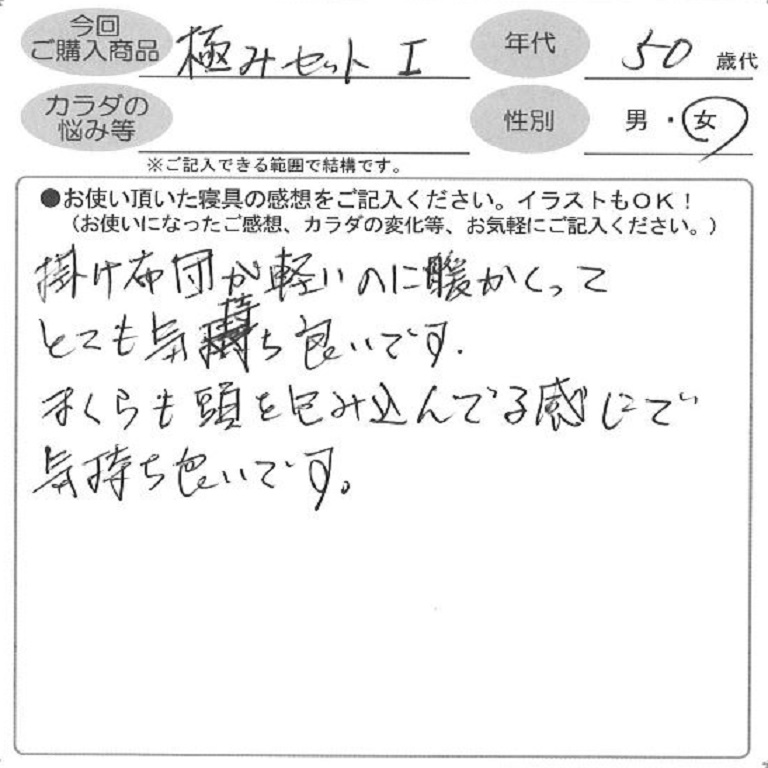 今回
ご購入商品
極みセット I
年代
50 歳代
カラダの
悩み等
性別
男・女
※ご記入できる範囲で結構です。
●お使い頂いた寝具の感想をご記入ください。イラストもOK!
(お使いになったご感想、カラダの変化等、お気軽にご記入ください。)
掛け布団が軽いのに暖かくって
とても気持ち良いです.
まくらも頭を包み込んでる感じで
気持ち良いです。